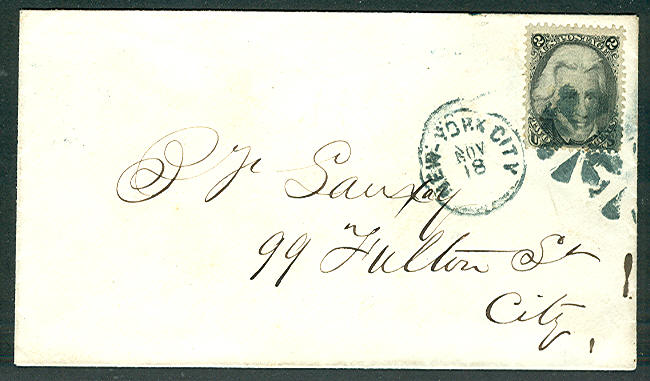 2 U.S. POSTAGE 2
NEW-YORK CITY
NOV
18
99 Fulton St
City